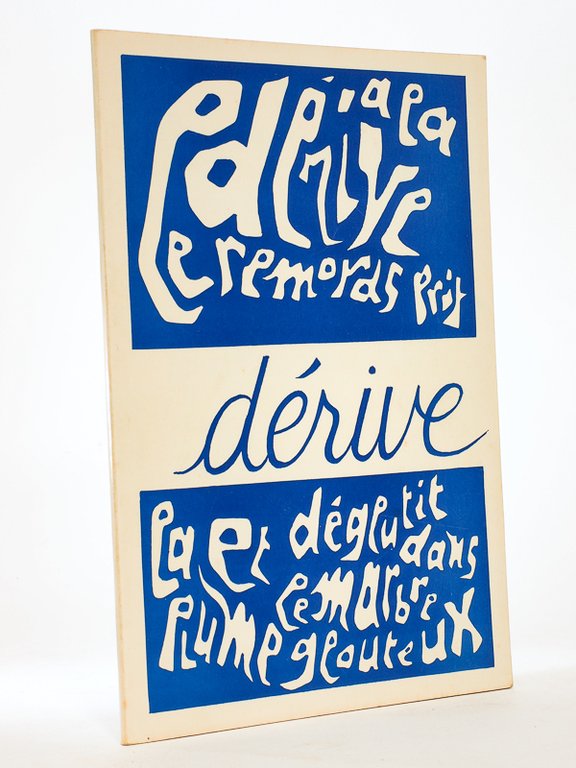 à la
dérive
Le remoras prit
dérive
la et déglutit
dans
le marbre
plume glouteux